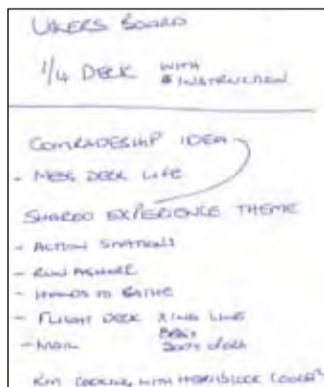 UKERS BOARD
1/4 DECK WITH
INSTRUCTION
COMRADESHIP IDEA
- MESS DECK LIFE
SHARED EXPERIENCE THEME
- ACTION STATIONS
- RUN ASHORE
- HANDS TO BATHE
- FLIGHT DECK XING LINE
- MAIL
COOKING WITH